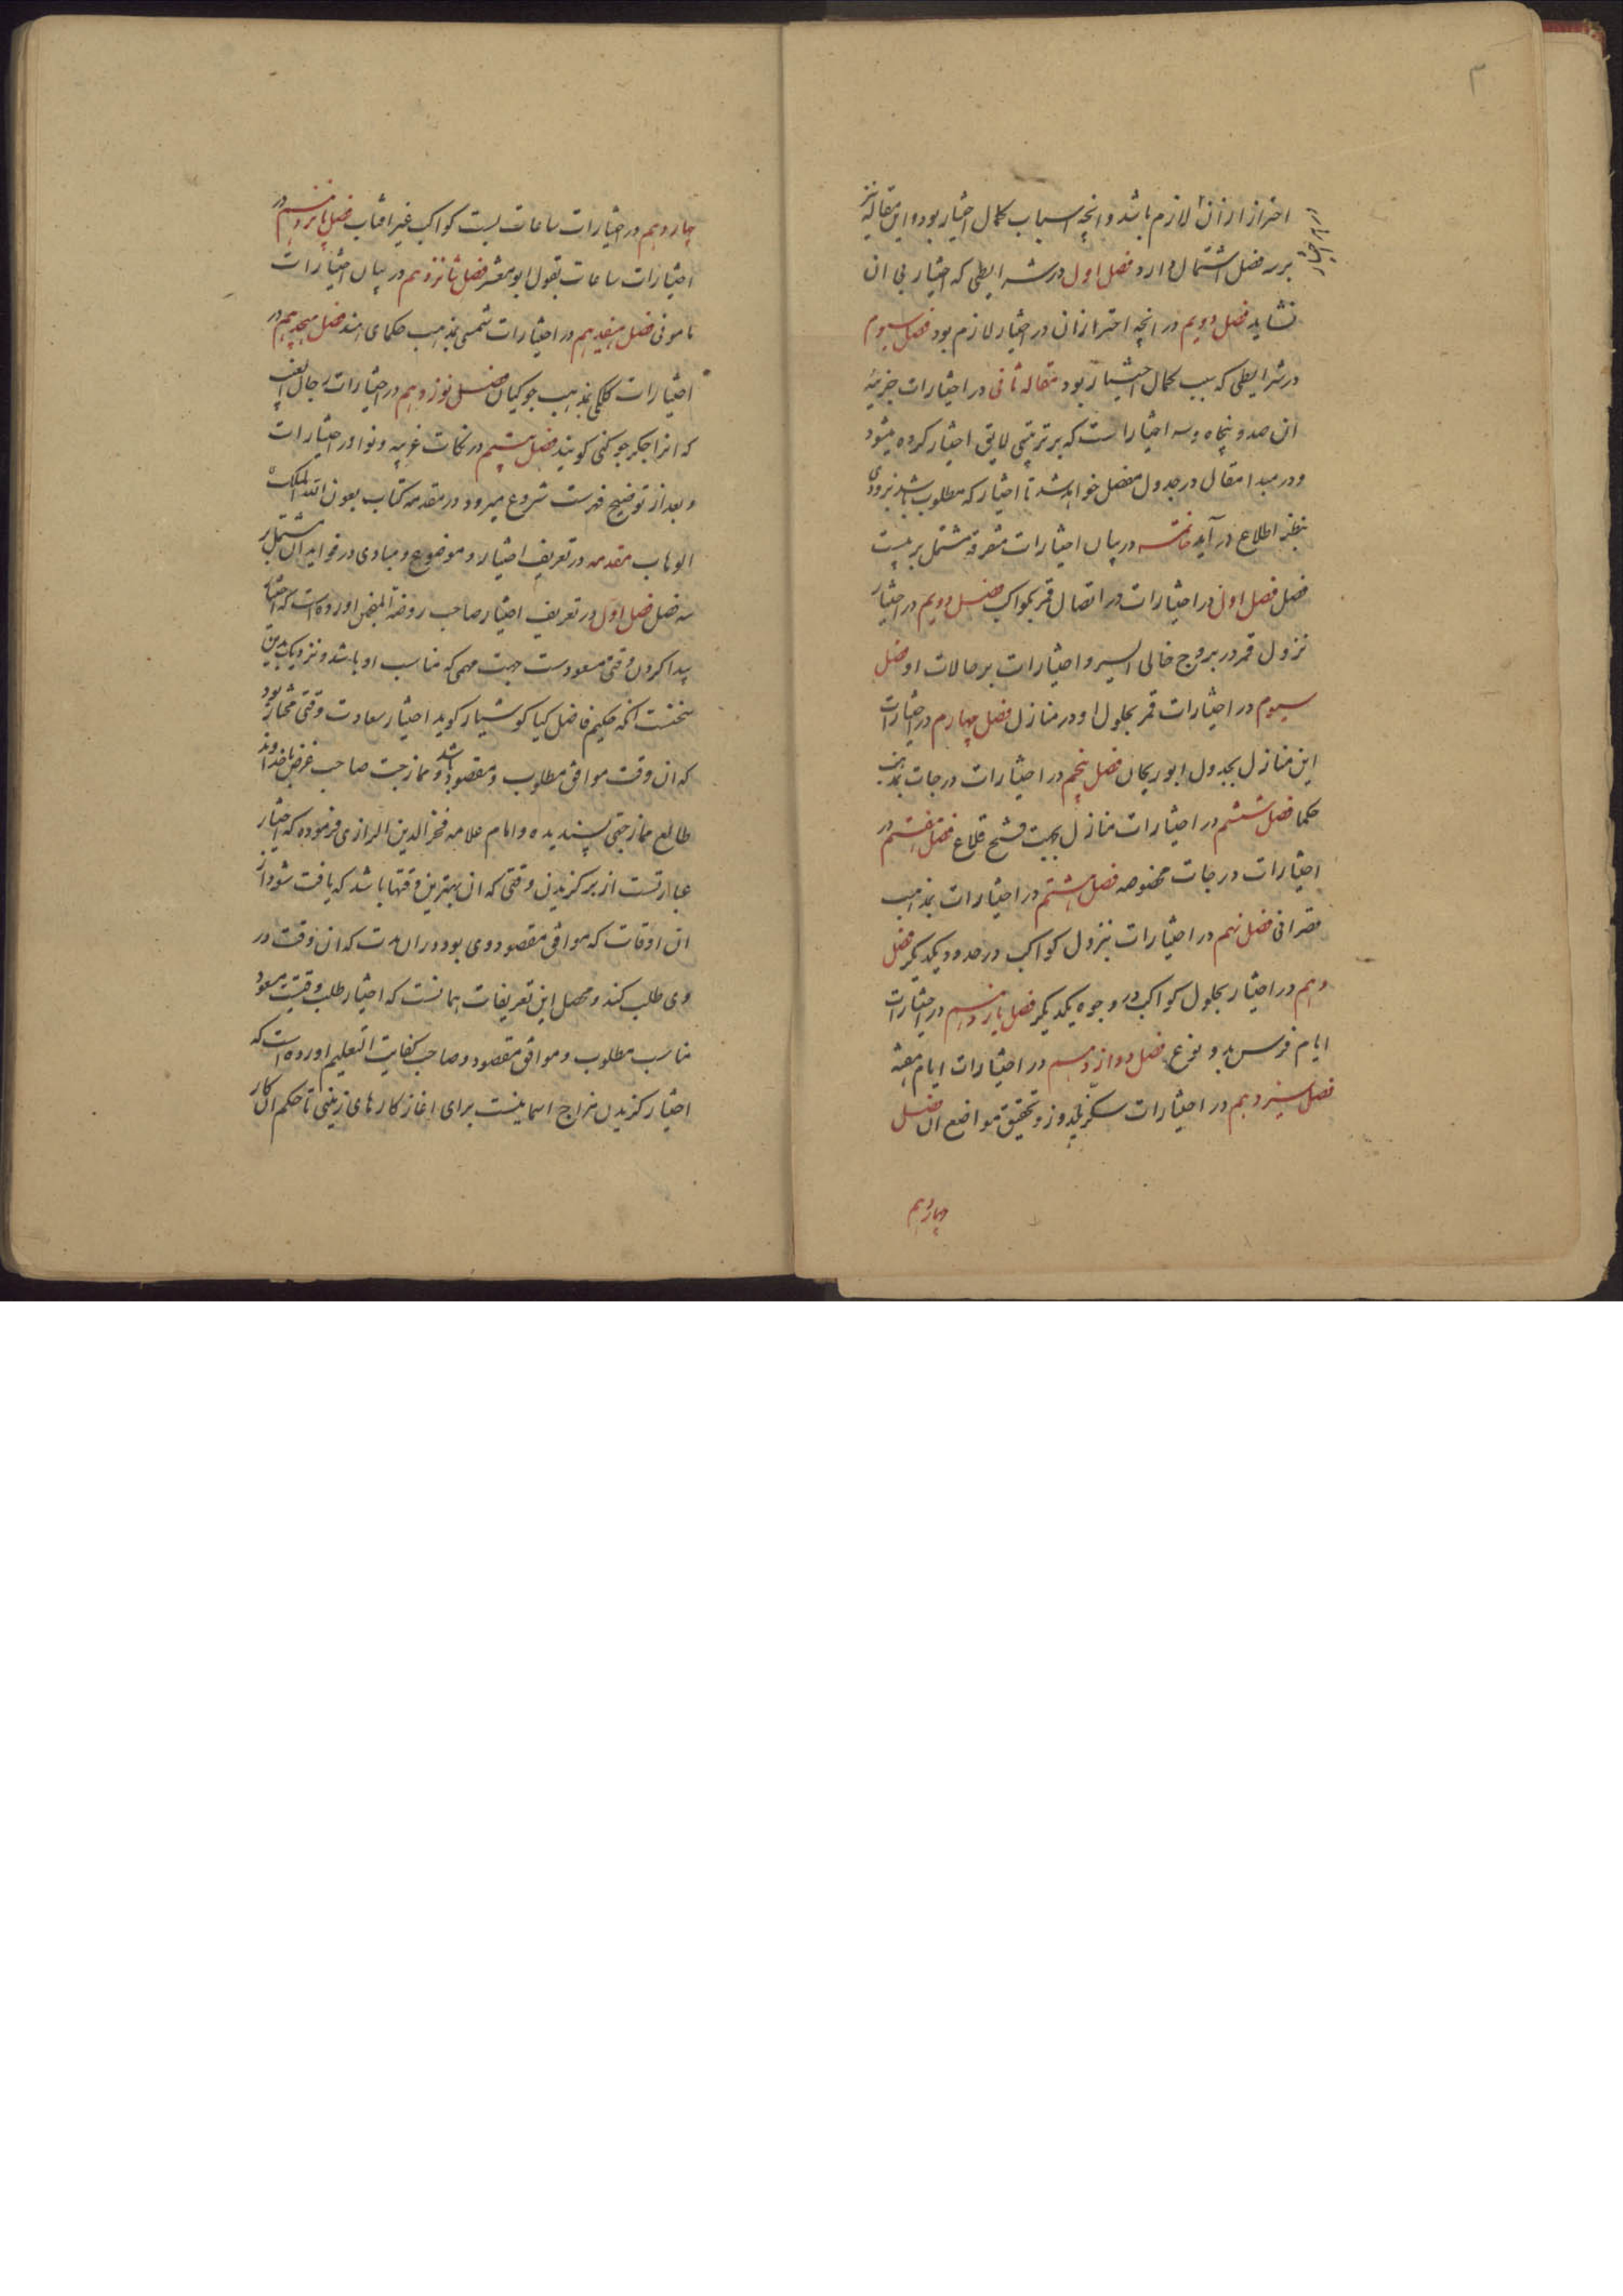 ۳
احتراز از ان لازم باشد و انچه اسباب کمال اختیار بود و این مقاله نیز
در امر اختیار
بر سه فصل اشتمال دارد فصل اول در شرایطی که اختیار بی ان
نشاید فصل دویم در انچه احتراز ازان در اختیار لازم بود فصل سیوم
در شرایطی که سبب کمال اختیار بود مقاله ثانی در اختیارات جزییه
ان صد و پنجاه و سه اختیار است که بر ترتیبی لایق اختیار کرده میشود
و در مبدا مقال در جدول مفصل خواهد شد تا اختیار که مطلوب باشد بزودی
بنظر اطلاع در آید خاتمه در بیان اختیارات متفرقه مشتمل بر بیست
فصل فصل اول در اختیارات در اتصال قمر بکواکب فصل دویم در اختیار
نزول قمر در بروج خالی السیر و اختیارات بر حالات او فصل
سیوم در اختیارات قمر بحلول او در منازل فصل چهارم در اختیارات
این منازل بجدول ابو ریحان فصل پنجم در اختیارات درجات بمذهب
حکما فصل ششم در اختیارات منازل بجهت فتح قلاع فصل هفتم در
اختیارات درجات مخصوصه فصل هشتم در اختیارات بمذهب
نصرانی فصل نهم در اختیارات بنزول کواکب در حدود یکدیگر فصل
دهم در اختیار بحلول کواکب در وجوه یکدیگر فصل یازدهم در اختیارات
ایام فرس بدو نوع فصل دوازدهم در اختیارات ایام هفته
فصل سیزدهم در اختیارات سکزیلدوز و تحقیق مواضع ان فصل
چهاردهم
چاردهم در اختیارات ساعات بست کواکب غیر افتاب فصل پانزدهم در
اختیارات ساعات بقول ابو معشر فصل شانزدهم در بیان اختیارات
مامونی فصل هفدهم در اختیارات شمسی بمذهب حکمای هند فصل هجدهم در
اختیارات کلی بمذهب جوکیان فصل نوزدهم در اختیارات رجال الغیب
که انرا چکر جوکنی کویند فصل بیستم در نکات غریبه و نوادر اختیارات
و بعد از توضیح فهرست شروع میرود در مقدمه کتاب بعون الله الملک
الوهاب مقدمه در تعریف اختیار و موضوع و مبادی در فواید ان مشتمل بر
سه فصل فصل اول در تعریف اختیار صاحب روضة المنجمین اورده است که اختیار
پیدا کردن وقتی مسعودست جهت مهمی که مناسب او باشد و نزدیک بدین
سخنست انکه حکیم فاضل کیا کوشیار کوید اختیار سعادت وقتی مختار بود
که ان وقت موافق مطلوب و مقصود باشد و ممازجت صاحب غرض با خداوند
طالع ممازجتی پسندیده و امام علامه فخر الدین الرازی فرموده که اختیار
عبارتست از بر کزیدن وقتی که ان بهترین وقتها باشد که یافت شود از
ان اوقات که موافق مقصود وی بود دران مدت که ان وقت در
وی طلب کند و محصل این تعریفات همانست که اختیار طلب وقتیست مسعود
مناسب مطلوب و موافق مقصود و صاحب کفایت التعلیم اورده است که
اختیار کزیدن مزاج اسمانیست برای اغاز کارهای زمینی تا حکم ان کار